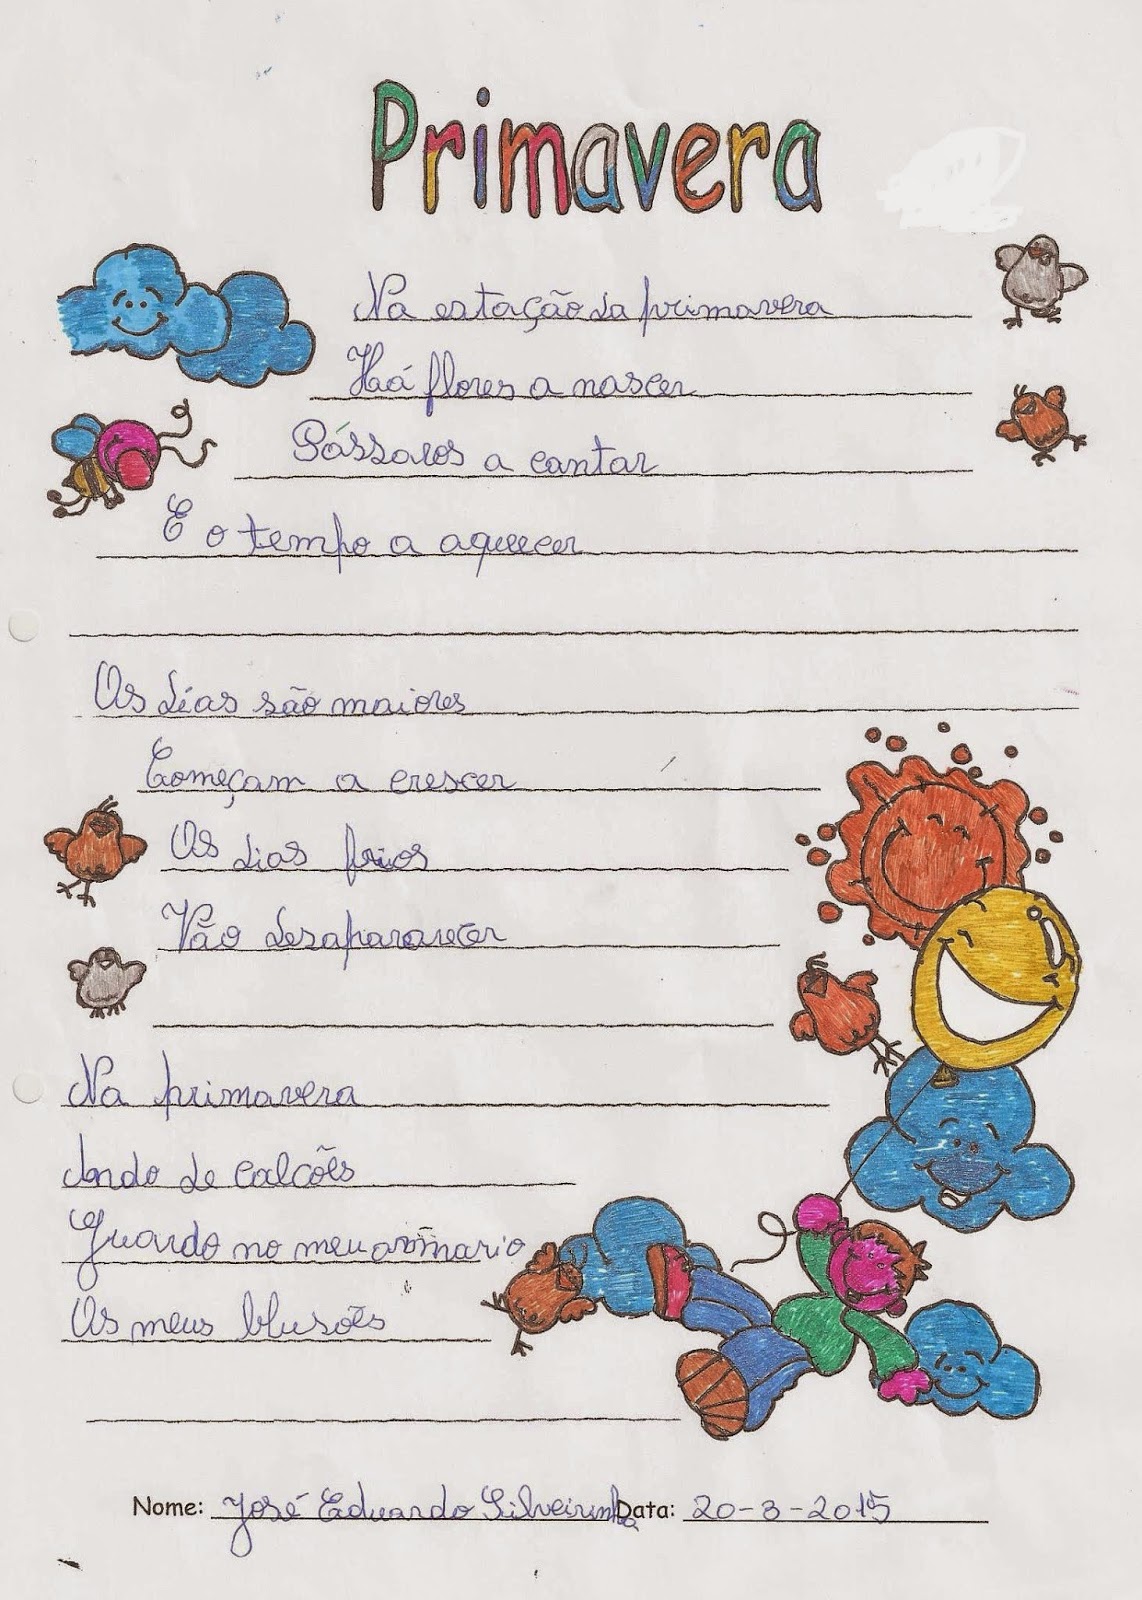 Primavera
Na estação da primavera
Há flores a nascer
Pássaros a cantar
E o tempo a aquecer
Os dias são maiores
Começam a crescer
Os dias frios
Vão desapararecer
Na primavera
Ando de calcões
Guardo no meu armario
Os meus blusões
Nome: José Eduardo Silveirinha Data: 20-3-2015